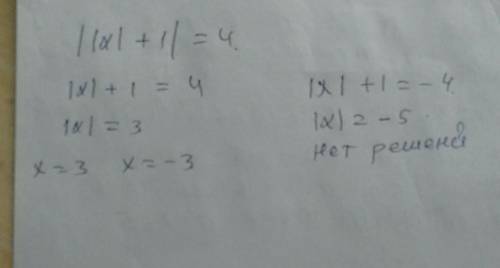 ||x| + 1| = 4.
|x| + 1 = 4
|x| = 3
x = 3 x = -3
|x| + 1 = -4
|x| = -5.
нет решений